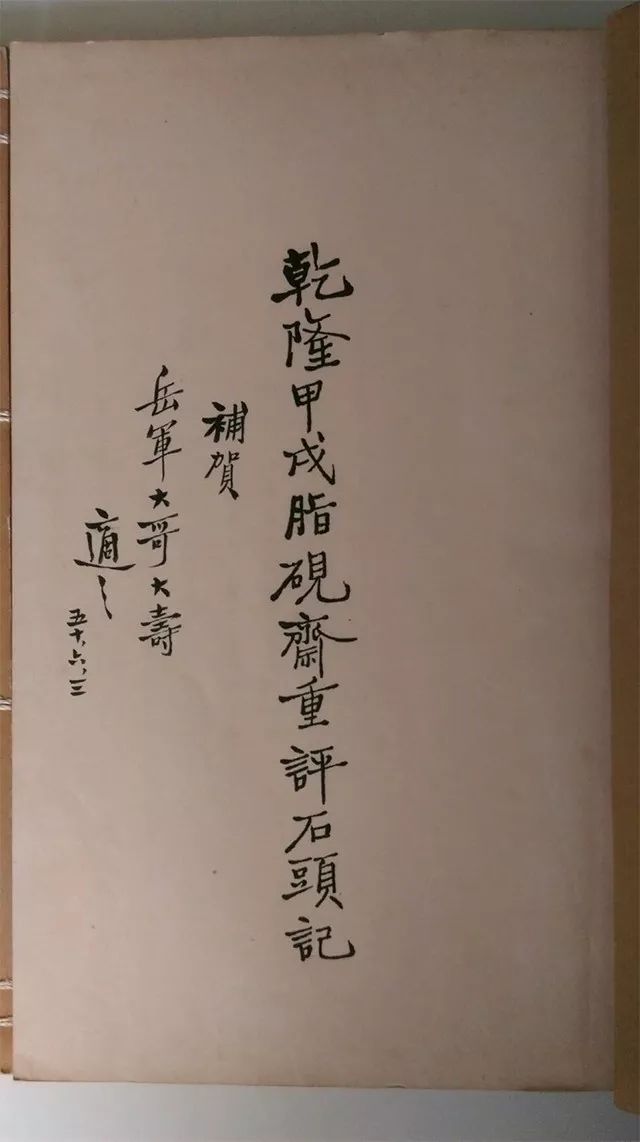 乾隆甲戌脂硯齋重評石頭記
補賀
岳軍大哥大壽
適之
五十、六、三